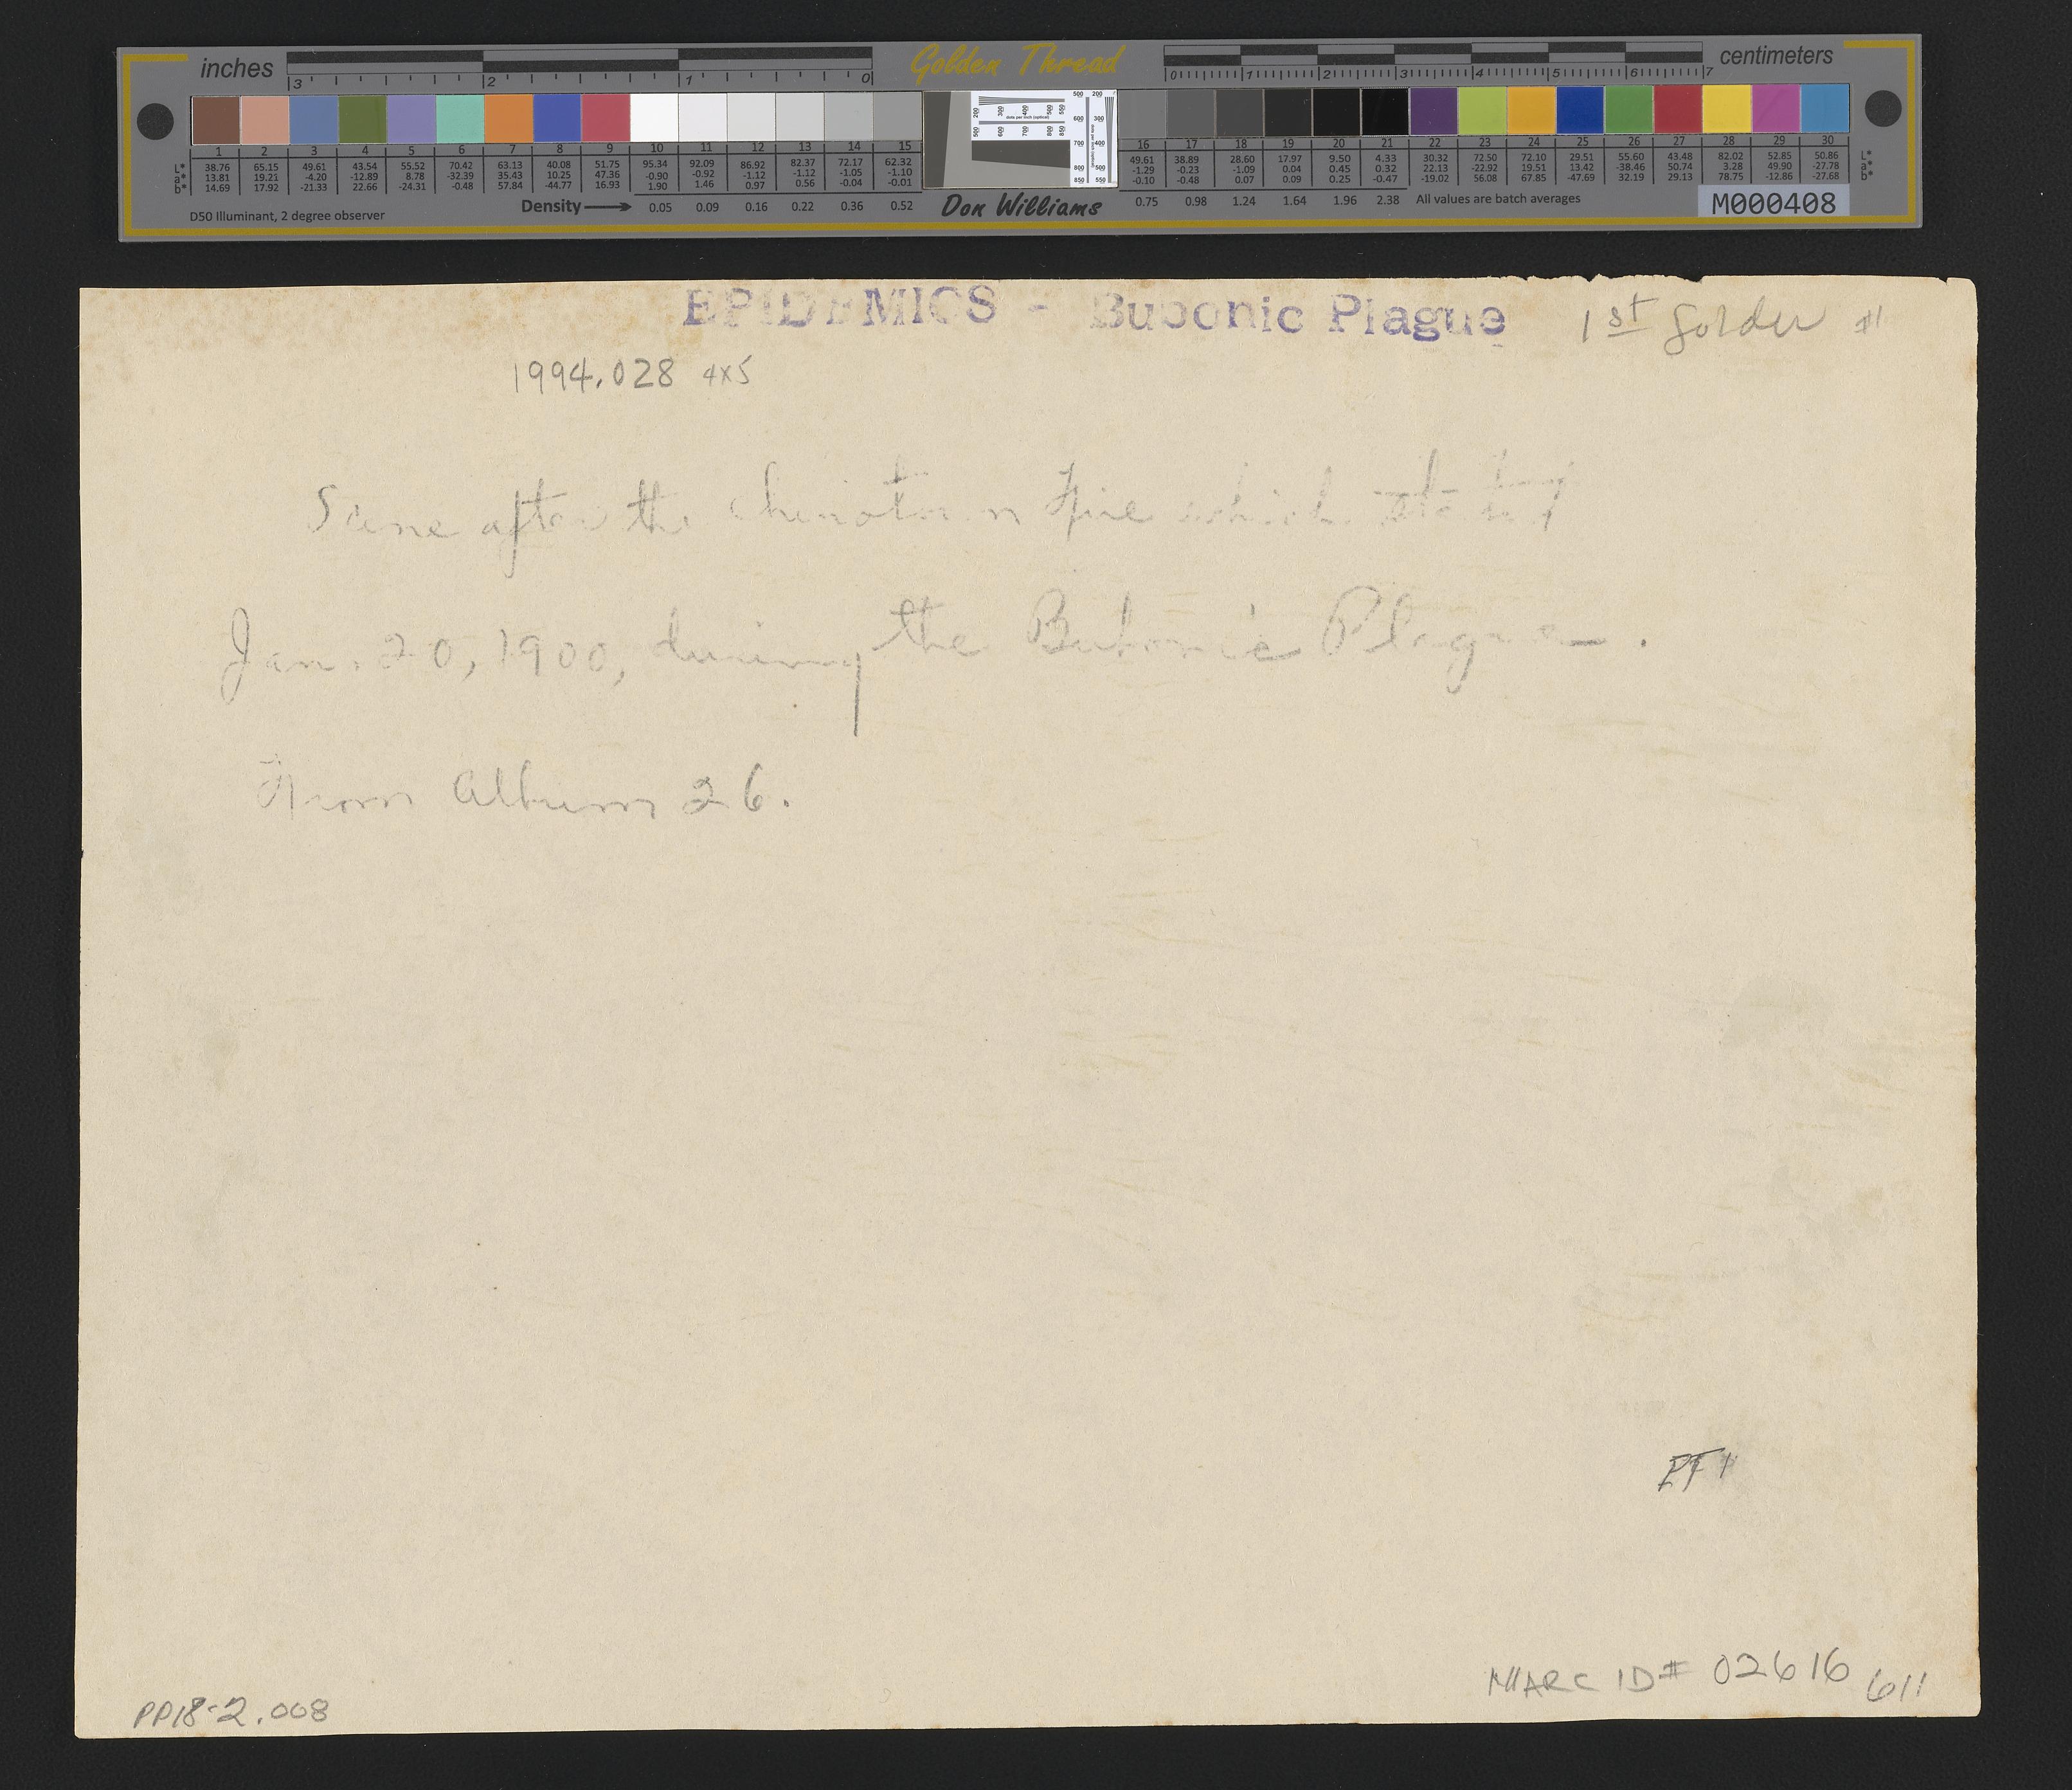 inches 3 2 1 0 Golden Thread 0 1 2 3 4 5 6 7 centimeters
1 2 3 4 5 6 7 8 9 10 11 12 13 14 15 16 17 18 19 20 21 22 23 24 25 26 27 28 29 30
L* 38.76 65.15 49.61 43.54 55.52 70.42 63.13 40.08 51.75 95.34 92.09 86.92 82.37 72.17 62.32 49.61 38.89 28.60 17.97 9.50 4.33 30.32 72.50 72.10 29.51 55.60 43.48 82.02 52.85 50.86 L*
a* 13.81 19.21 -4.20 -12.89 8.78 -32.39 35.43 10.25 47.36 -0.90 -0.92 -1.12 -1.12 -1.05 -1.10 -1.29 -0.23 -1.09 0.04 0.45 0.32 22.13 -22.92 19.51 13.42 -38.46 50.74 3.28 49.90 -27.78 a*
b* 14.69 17.92 -21.33 22.66 -24.31 -0.48 57.84 -44.77 16.93 1.90 1.46 0.97 0.56 -0.04 -0.01 -0.10 -0.48 0.07 0.09 0.25 -0.47 -19.02 56.08 67.85 -47.69 32.19 29.13 78.75 -12.86 -27.68 b*
D50 Illuminant, 2 degree observer Density 0.05 0.09 0.16 0.22 0.36 0.52 Don Williams 0.75 0.98 1.24 1.64 1.96 2.38 All values are batch averages M000408
EPIDEMICS - Bubonic Plague 1st folder #1
1994.028 4x5
Scene after the Chinatown Fire which started
Jan. 20, 1900, during the Bubonic Plague.
From Album 26.
MARC ID# 02616 611
PP18-2.008